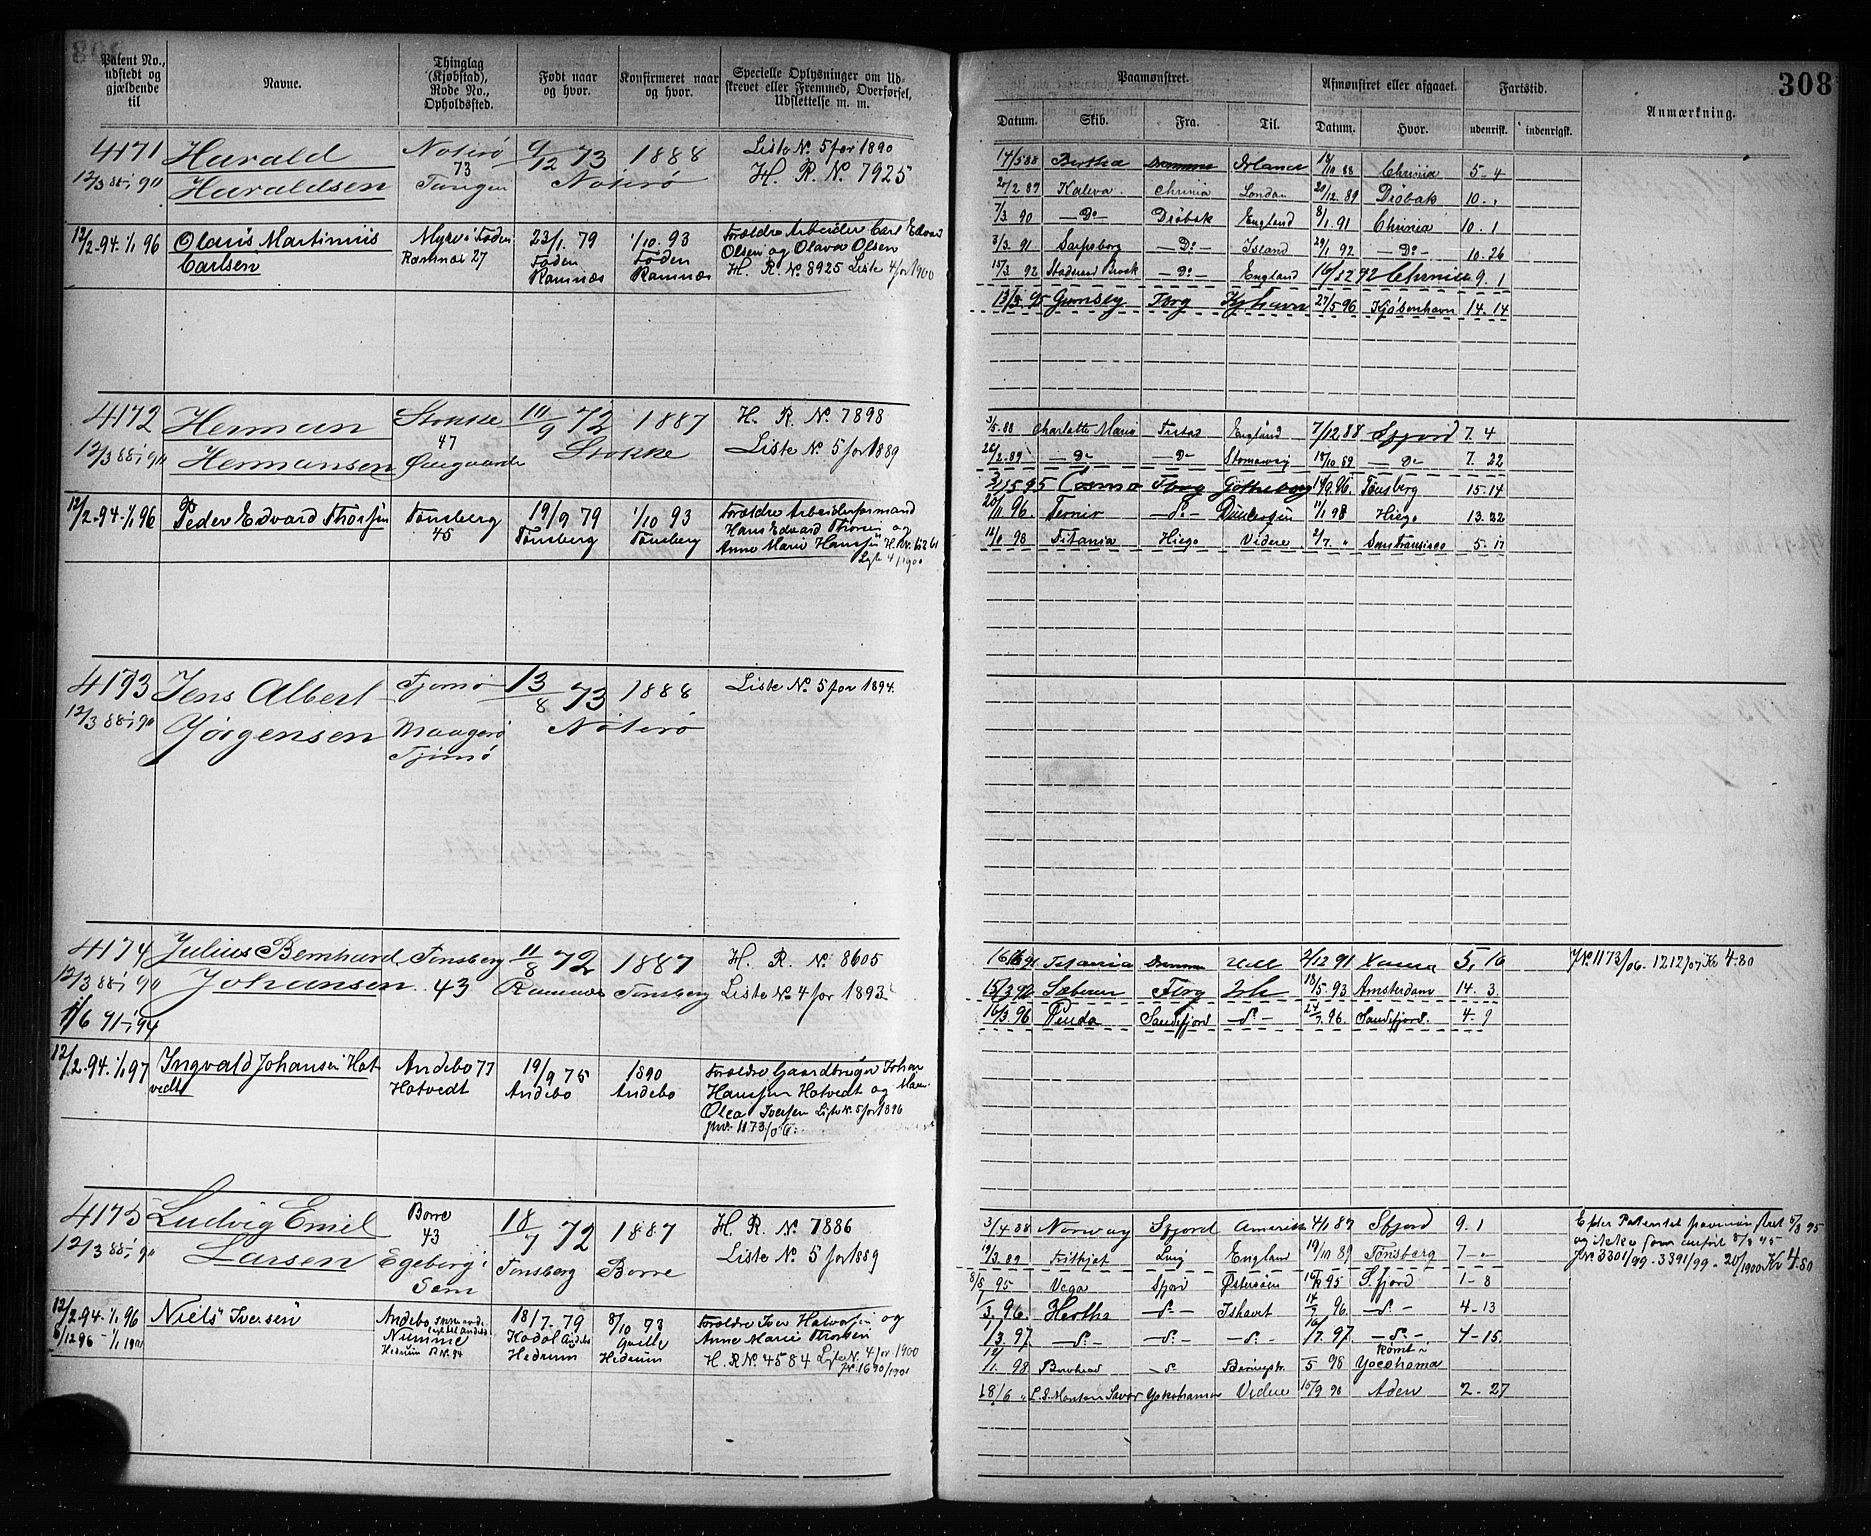 308
Patent No., udstedt og gjældende til
Navne.
Thinglag (Kjøbstad), Rode No., Opholdssted.
Født naar og hvor.
Konfirmeret naar og hvor.
Specielle Oplysninger om Udskrevet eller Fremmed, Overførsel, Udslettelse m. m.
Paamønstret.
Afmønstret eller afgaaet.
Fartstid.
Anmærkning.
Datum. Skib. Fra. Til. Datum. Hvor. udenrikst. indenrigst.
4171 Harald Nøterø 9/12 73 1888 Liste No. 5 for 1890
12/3 88-1/90 Haraldsen 73 Tangen Nøterø H. R. No. 7925
12/2 94. 1/1 96 Olaus Martinius Carlsen
Ramnæs 27
23/1. 79
Ramnæs
1/10. 93
Ramnæs
Forældre Arbeider Carl Edvard
Olsen og Olava Olsen
H. R. No 8925 Liste 4 for 1900
17/5 88 Bertha Dramme Irland 18/10 88 Chrinia 5-4
20/2 89 Kaleva Chrinia London 20/12 89 Drøbak 10.
7/3 90 — Do Drøbak England 8/1 91 Chrinia 10. 1
3/3. 91 Sarpsborg — Do — Island 29/1 92 — Do — 10. 26
15/3 92 — Do — England 16/12 92 Chrinia 9. 1
13/3. 95 Grimsby Tbrg Kjøbhavn 27/5 96 Kjøbenhavn 14. 14
4172 Herman Stokke 11/9 72 1887 H. R. No. 7898
12/3 88-1/90 Hermansen 47 Stokke Liste No. 5 for 1889
12/2. 94. 1/1 96 Peder Edvard Thorsen Tønsberg 45 19/9 79 Tønsberg 1/10 93 Tønsberg
Forældre Arbeiderformand
Hans Edvard Thorsen og
Anne Marie Hansen
Liste 4/1900
3/5. 88 Charlotte Marie England 7/12 88 Sfjord 7. 4
26/2. 89 — Do — — Do — — Do — 7. 22
Cosmo Tbrg Gøtheborg 14/9 96. Tønsberg 15. 14
20/11 96. 11/1 98 Hiogo 13. 22
98 Titania Hiogo Videre 2/7. San Francisco 5. 17
4173 Jens Albert Tjømø 13/8 73 1888 Liste No. 5 for 1894.
12/3 88-1/90 Jørgensen Maagerø Tjømø Nøterø
4174 Julius Bernhard Tønsberg 11/8 72 1887 H. R. No. 8605
12/3 88-1/90 Johansen 43 Ramnæs Tønsberg Liste No. 4 for 1893
1/6 91-1/94
12/2. 94. 1/1 97 Ingvald Johansen Hotvedt
Andebo 77
Hotvedt
19/9 75
Andebo
1890
Andebo
Forældre Gaardbruger Johan
Hansen Hotvedt og
Olea Iversen Liste No. 5 for 1896
Jno. 1173/06.
Titania Dramme Hull 2/12 91 5. 16
15/3 92 Tbrg 18/5. 93 Amsterdam 14. 3
16/3 96 Sandefjord 96. Sandefjord. 4. 9
JNo 1173/06. 1212/07 Kr 4.80
4175 Ludvig Emil Borre 18/7 72 1887 H. R. No. 7886
12/3 88-1/90 Larsen 43 Egeberg i Sem Tønsberg Borre Liste No. 5 for 1889
12/2. 94. 1/1 96 Niels Iversen
6/12 96 - 1/1 1901
Andebo
Hedrum R No. 94
18/7. 79
Hedrum
8/10 93
Hedrum
Forældre Iver Halvorsen og
Anne Marie Thorsen
H. R No 4584 Liste No. 4 for 1900
JNo. 1690/1901
3/4. 88 Norway Sfjord Amerika 4/1 89 Sfjord 9. 1
19/3. 89 Fridthjof England 19/10 89 Tønsberg 7 -
95 Vega Sfjord Østersøen 95 Sfjord 1 - 8
96. Hertha — Do — Ishavet 96. — Do — 4 - 13
1/3. 97 — Do — — Do — — Do — 97 — Do — 4 - 15
98 98 Yocohama
18/6 Yokohama Videre 15/9 98 Aden 2 - 27
JNo 3301/99 - 3391/99 - 20/1900 Kr 4.80